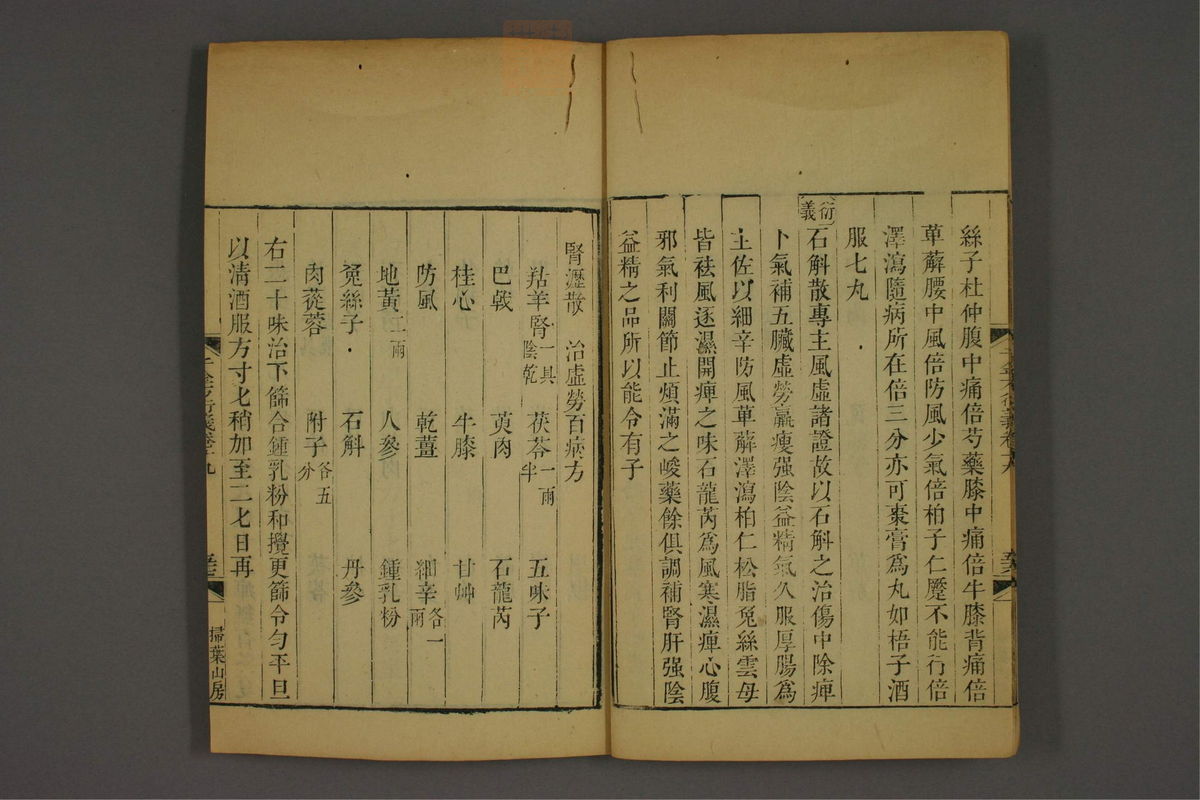 絲子杜仲腹中痛倍芍藥膝中痛倍牛膝背痛倍
萆薢腰中風倍防風少氣倍柏子仁蹷不能行倍
澤瀉隨病所在倍三分亦可棗膏爲丸如梧子酒
服七丸
衍義
石斛散專主風虛諸證故以石斛之治傷中除痺
卜氣補五臟虛勞羸瘦强陰益精氣久服厚腸爲
主佐以細辛防風萆薢澤瀉柏仁松脂兔絲雲母
皆祛風逐濕開痺之味石龍芮爲風寒濕痺心腹
邪氣利關節止煩滿之峻藥餘俱調補腎肝强陰
益精之品所以能令有子
腎瀝散 治虛勞百病方
羖羊腎一具陰乾 茯苓一兩半 五味子
巴戟 萸肉 石龍芮
桂心 牛膝 甘艸
防風 乾薑 細辛各一兩
地黃二兩 人參 鍾乳粉
兔絲子 石斛 丹參
肉蓯蓉 附子各五分
右二十味治下篩合鍾乳粉和攪更篩令勻平旦
以清酒服方寸匕稍加至二匕日再
掃葉山房